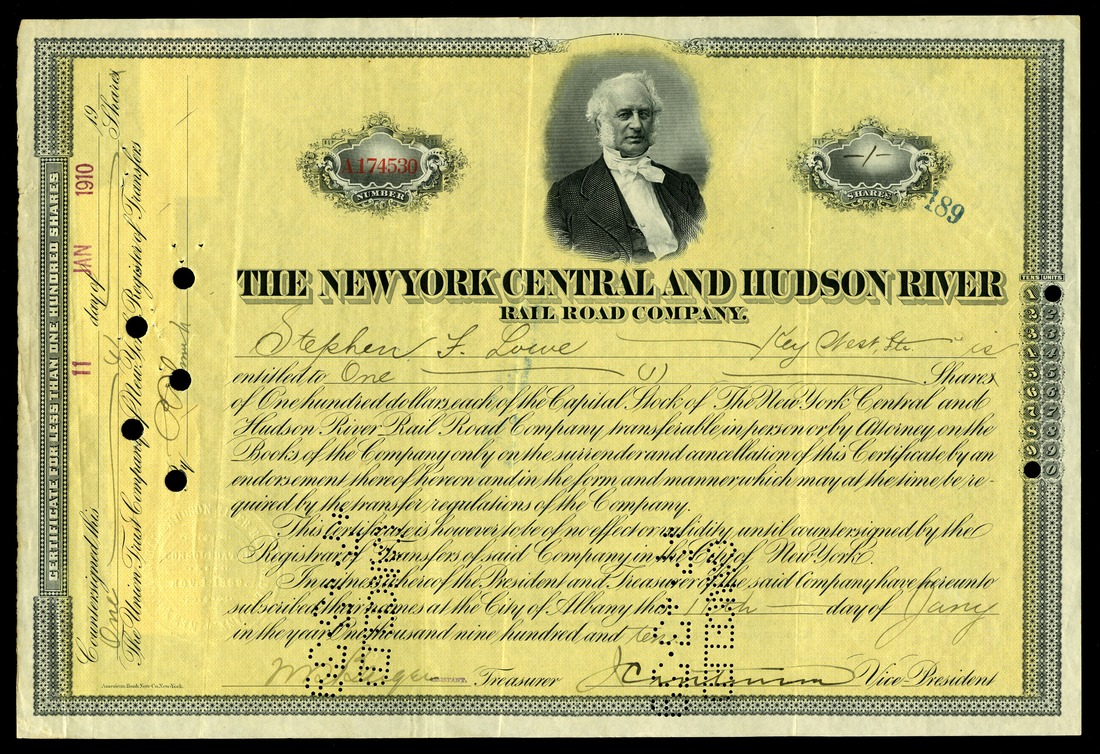 A174530
NUMBER
-1-
SHARES
189
THE NEW YORK CENTRAL AND HUDSON RIVER
RAIL ROAD COMPANY.
Stephen F. Lowe Key West, is
entitled to One (1) Shares
of One hundred dollars each of the Capital Stock of The New York Central and
Hudson River Rail Road Company transferable in person or by Attorney on the
Books of the Company only on the surrender and cancellation of this Certificate by an
endorsement thereof hereon and in the form and manner which may at the time be re-
quired by the transfer regulations of the Company.
This Certificate is however to be of no effect or validity until countersigned by the
Registrar of Transfers of said Company in the City of New York.
In witness whereof the President and Treasurer of the said Company have hereunto
subscribed their names at the City of Albany this 11th day of Jany
in the year One thousand nine hundred and ten
ASSISTANT. Treasurer Vice President
American Bank Note Co. New York.
CERTIFICATE FOR LESS THAN ONE HUNDRED SHARES
Countersigned this 11 day of JAN 1910 19
One Shares
The Union Trust Company of New York Registrar of Transfers
By
TENS UNITS
1
2
3
4
5
6
7
8
9
0